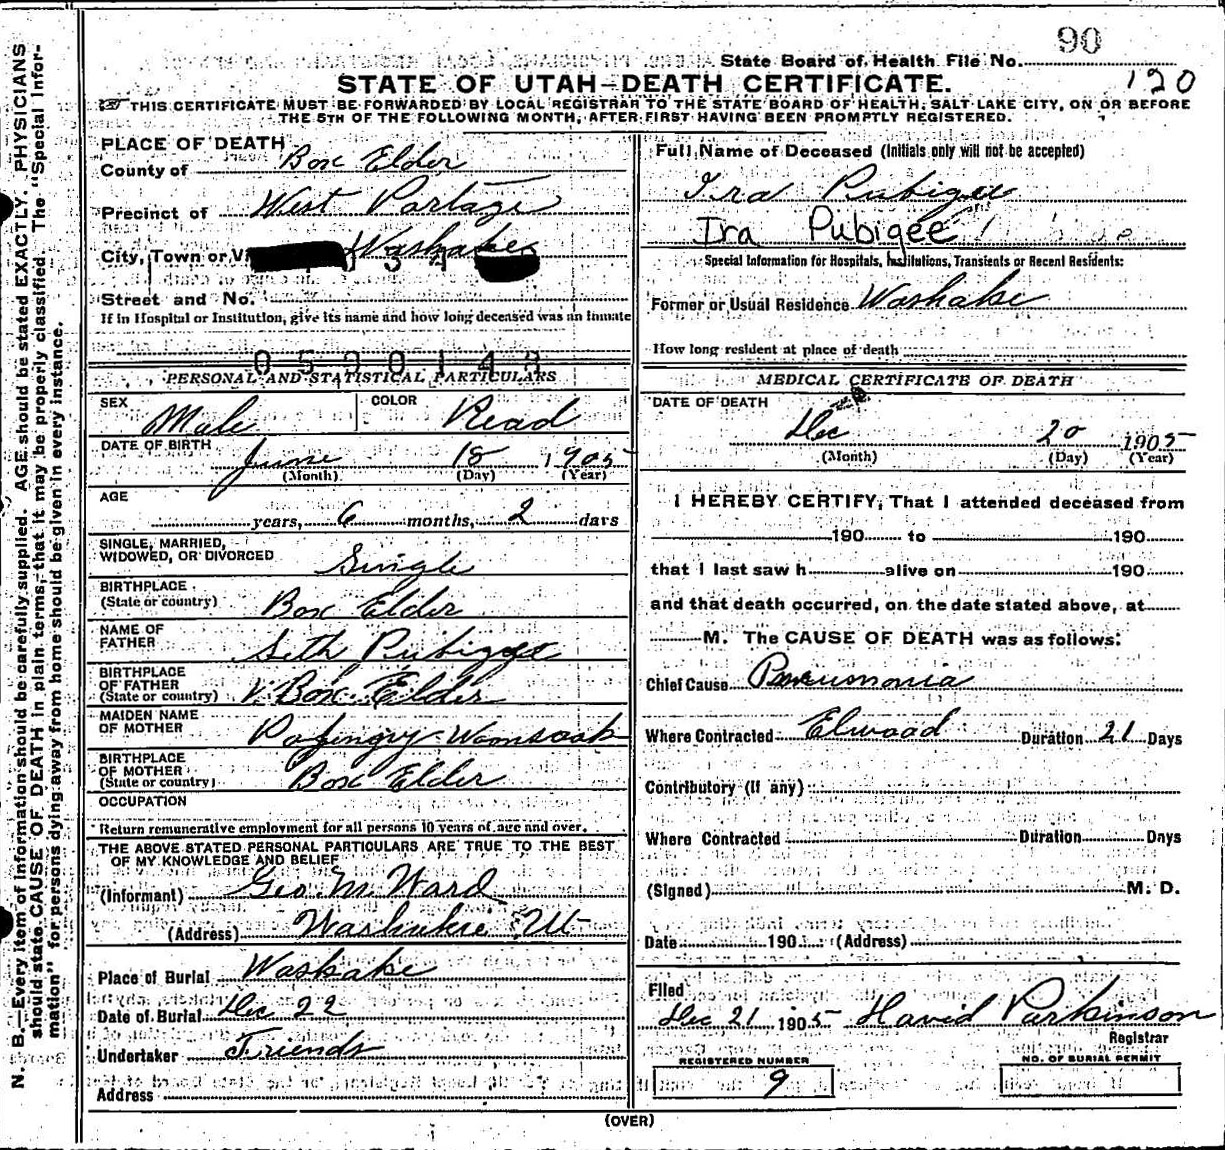 90
State Board of Health File No.
120
STATE OF UTAH—DEATH CERTIFICATE.
THIS CERTIFICATE MUST BE FORWARDED BY LOCAL REGISTRAR TO THE STATE BOARD OF HEALTH, SALT LAKE CITY, ON OR BEFORE
THE 5TH OF THE FOLLOWING MONTH, AFTER FIRST HAVING BEEN PROMPTLY REGISTERED.
PLACE OF DEATH
County of Box Elder
Precinct of West Portage
City, Town or V Washakee
Street and No.
If in Hospital or Institution, give its name and how long deceased was an inmate
0520143
PERSONAL AND STATISTICAL PARTICULARS
SEX Male COLOR Read
DATE OF BIRTH June 18 1905
(Month) (Day) (Year)
AGE
years, 6 months, 2 days
SINGLE, MARRIED,
WIDOWED, OR DIVORCED Single
BIRTHPLACE
(State or country) Box Elder
NAME OF
FATHER Seth Pubigee
BIRTHPLACE
OF FATHER
(State or country) Box Elder
MAIDEN NAME
OF MOTHER
BIRTHPLACE
OF MOTHER
(State or country) Box Elder
OCCUPATION
Return remunerative employment for all persons 10 years of age and over.
THE ABOVE STATED PERSONAL PARTICULARS ARE TRUE TO THE BEST
OF MY KNOWLEDGE AND BELIEF
(Informant) Geo. M. Ward
(Address) Washakie Ut
Place of Burial Washake
Date of Burial Dec 22
Undertaker Friends
Address
Full Name of Deceased (Initials only will not be accepted)
Ira Pubigee
Ira Pubigee
Special Information for Hospitals, Institutions, Transients or Recent Residents:
Former or Usual Residence Washake
How long resident at place of death
MEDICAL CERTIFICATE OF DEATH
DATE OF DEATH
Dec 20 1905
(Month) (Day) (Year)
I HEREBY CERTIFY, That I attended deceased from
190 to 190
that I last saw h alive on 190
and that death occurred, on the date stated above, at
M. The CAUSE OF DEATH was as follows:
Chief Cause Pneumonia
Where Contracted Elwood Duration 21 Days
Contributory (if any)
Where Contracted Duration Days
(Signed) M. D.
Date 190 (Address)
Filed
Dec 21 1905 David Parkinson
Registrar
REGISTERED NUMBER
9
NO. OF BURIAL PERMIT
(OVER)
N. B.—Every item of information should be carefully supplied. AGE should be stated EXACTLY. PHYSICIANS
should state CAUSE OF DEATH in plain terms, that it may be properly classified. The "Special Infor-
mation" for persons dying away from home should be given in every instance.